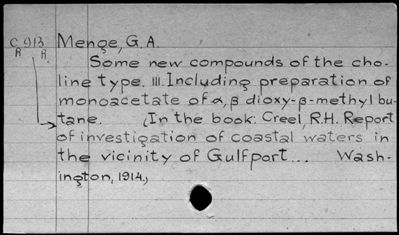 C 913 Menge, G. A.
R R.
Some new compounds of the cho-
line type. III. Including preparation of
monoacetate of α, β dioxy-β-methyl bu-
tane. (In the book: Creel, R.H. Report
of investigation of coastal waters in
the vicinity of Gulfport... Wash-
ington, 1914.)